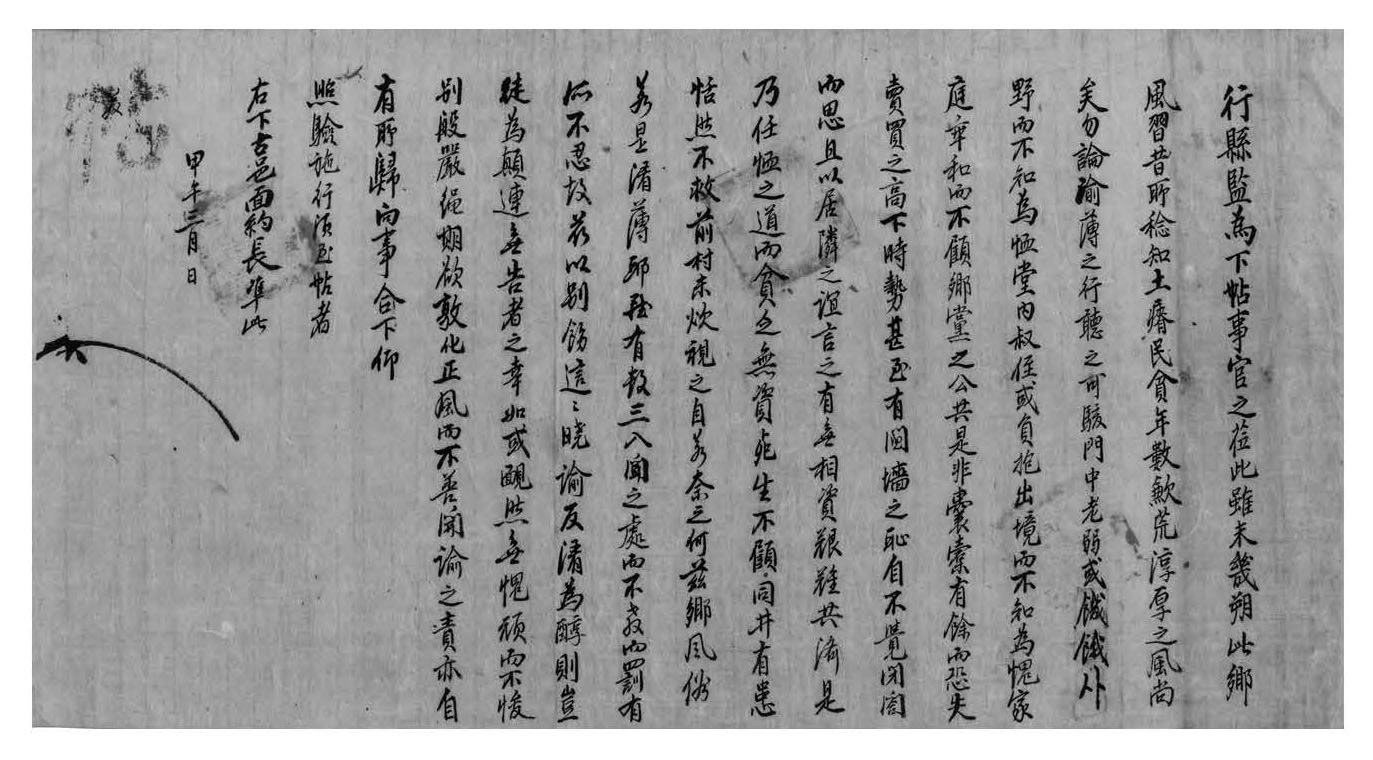 行縣監爲下帖事官之莅此雖未幾朔此鄉
風習昔所稔知土瘠民貧年數歉荒淳厚之風尚
矣勿論渝薄之行聽之可駭門中老弱或餓餓
野而不知爲恤堂內叔侄或負抱出境而不知爲愧家
庭乖和而不顧鄉黨之公共是非囊橐有餘而恐失
賣買之高下時勢甚至有鬩墻之恥自不覺閉閤
而思且以居隣之誼言之有無相資艱難共濟是
乃任恤之道而貧乏無資死生不顧同井有患
恬然不救前村未炊視之自若奈之何玆鄉風俗
若是淆薄耶 有數三入聞之處而不敎而罰有
所不忍故玆以別飭這〻曉諭反淆爲醇則豈
徒爲顚連無告者之幸如或靦然無愧頑而不悛
別般嚴繩期欲敦化正風而不善開諭之責亦自
有所歸向事合下仰
照驗施行須至帖者
右下古邑面約長 準此
甲午三月 日